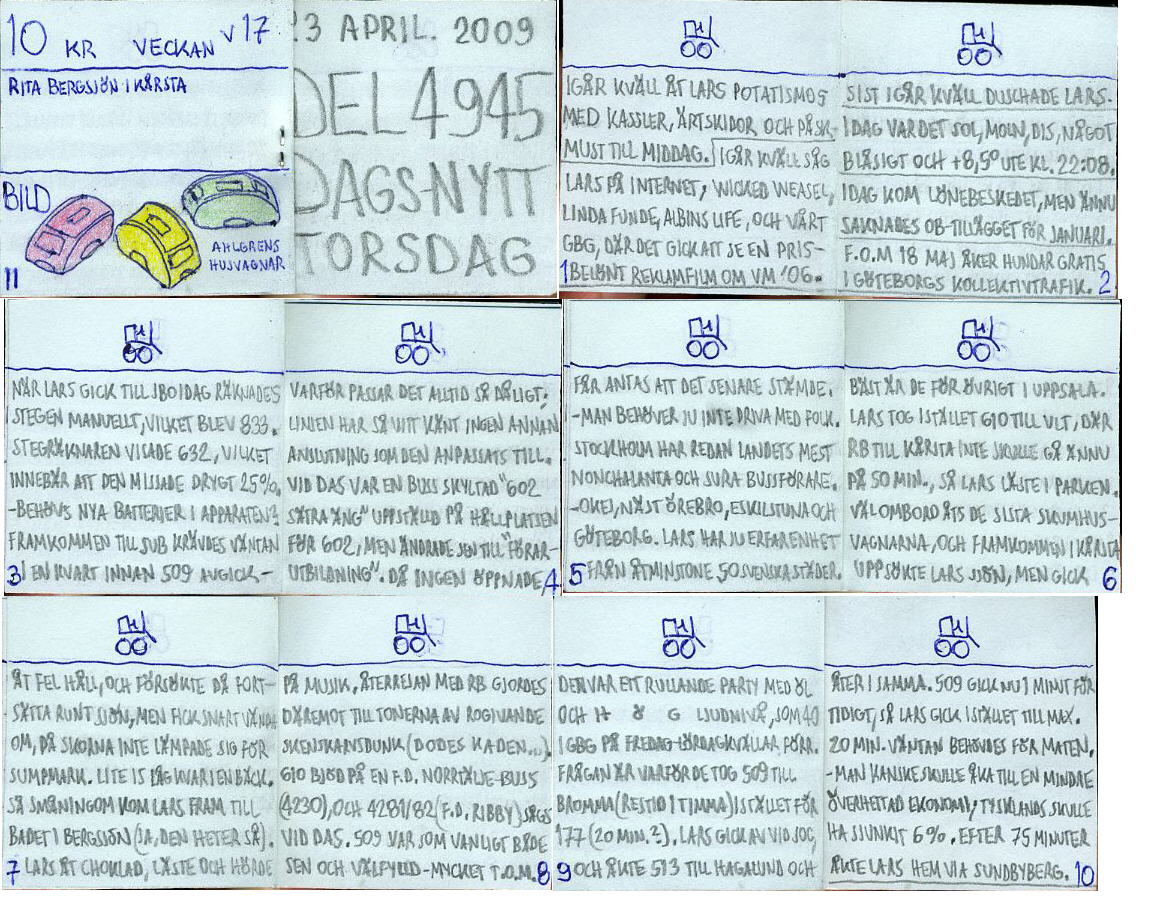 10 KR VECKAN V17
RITA BERGSJÖN I KÅRSTA
BILD
AHLGRENS
HUSVAGNAR
11
23 APRIL. 2009
DEL 4945
DAGS-NYTT
TORSDAG
IGÅR KVÄLL ÅT LARS POTATISMOS
MED KASSLER, ÄRTSKIDOR OCH PÅSK-
MUST TILL MIDDAG. IGÅR KVÄLL SÅG
LARS PÅ INTERNET, WICKED WEASEL,
LINDA FUNDE, ALBINS LIFE, OCH VÅRT
GBG, DÄR DET GICK ATT SE EN PRIS-
BELÖNT REKLAMFILM OM VM '06.
1
SIST IGÅR KVÄLL DUSCHADE LARS.
IDAG VAR DET SOL, MOLN, DIS, NÅGOT
BLÅSIGT OCH +8,5° UTE KL. 22:08.
IDAG KOM LÖNEBESKEDET, MEN ÄNNU
SAKNADES OB-TILLÄGGET FÖR JANUARI.
F.O.M 18 MAJ ÅKER HUNDAR GRATIS
I GÖTEBORGS KOLLEKTIVTRAFIK. 2
NÄR LARS GICK TILL JBO IDAG RÄKNADES
STEGEN MANUELLT, VILKET BLEV 833.
STEGRÄKNAREN VISADE 632, VILKET
INNEBÄR ATT DEN MISSADE DRYGT 25%.
-BEHÖVS NYA BATTERIER I APPARATEN?
FRAMKOMMEN TILL SUB KRÄVDES VÄNTAN
3 I EN KVART INNAN 509 AVGICK-
VARFÖR PASSAR DET ALLTID SÅ DÅLIGT;
LINJEN HAR SÅ VITT KÄNT INGEN ANNAN
ANSLUTNING SOM DEN ANPASSATS TILL.
VID DAS VAR EN BUSS SKYLTAD "602
SÄTRA ÄNG" UPPSTÄLLD PÅ HÅLLPLATSEN
FÖR 602, MEN ÄNDRADE SEN TILL "FÖRAR-
UTBILDNING". DÅ INGEN ÖPPNADE 4
FÅR ANTAS ATT DET SENARE STÄMDE.
-MAN BEHÖVER JU INTE DRIVA MED FOLK.
STOCKHOLM HAR REDAN LANDETS MEST
NONCHALANTA OCH SURA BUSSFÖRARE.
-OKEJ, NÄST ÖREBRO, ESKILSTUNA OCH
GÖTEBORG. LARS HAR JU ERFARENHET
5 FRÅN ÅTMINSTONE 50 SVENSKA STÄDER.
BÄST ÄR DE FÖR ÖVRIGT I UPPSALA.
LARS TOG ISTÄLLET 610 TILL VLT, DÄR
RB TILL KÅRSTA INTE SKULLE GÅ ÄNNU
PÅ 50 MIN., SÅ LARS LÄSTE I PARKEN.
VÄL OMBORD ÅTS DE SISTA SKUMHUS-
VAGNARNA, OCH FRAMKOMMEN I KÅRSTA
UPPSÖKTE LARS SJÖN, MEN GICK 6
ÅT FEL HÅLL, OCH FÖRSÖKTE DÅ FORT-
SÄTTA RUNT SJÖN, MEN FICK SNART VÄNDA
OM, DÅ SKORNA INTE LÄMPADE SIG FÖR
SUMPMARK. LITE IS LÅG KVAR I EN BÄCK.
SÅ SMÅNINGOM KOM LARS FRAM TILL
BADET I BERGSJÖN (JA, DEN HETER SÅ).
7 LARS ÅT CHOKLAD, LÄSTE OCH HÖRDE
PÅ MUSIK, ÅTERRESAN MED RB GJORDES
DÄREMOT TILL TONERNA AV ROGIVANDE
SKENSKARVSDUNK (DODES KADEN...).
610 BJÖD PÅ EN F.D. NORRTÄLJE-BUSS
(4230), OCH 4281/82 (F.D. RIBBY) SÅGS
VID DAS. 509 VAR SOM VANLIGT BÅDE
SEN OCH VÄLFYLLD-MYCKET T.O.M. 8
DEN VAR ETT RULLANDE PARTY MED ÖL
OCH H Ö G LJUDNIVÅ, SOM 40
I GBG PÅ FREDAG-LÖRDAGKVÄLLAR FÖRR.
FRÅGAN ÄR VARFÖR DE TOG 509 TILL
BROMMA (RESTID 1 TIMMA) ISTÄLLET FÖR
177 (20 MIN.?). LARS GICK AV VID JOC,
9 OCH ÅKTE 513 TILL HAGALUND OCH
ÅTER I SAMMA. 509 GICK NU 1 MINUT FÖR
TIDIGT, SÅ LARS GICK ISTÄLLET TILL MAX.
20 MIN. VÄNTAN BEHÖVDES FÖR MATEN.
-MAN KANSKE SKULLE ÅKA TILL EN MINDRE
ÖVERHETTAD EKONOMI; TYSKLANDS SKULLE
HA SJUNKIT 6%. EFTER 75 MINUTER
ÅKTE LARS HEM VIA SUNDBYBERG. 10